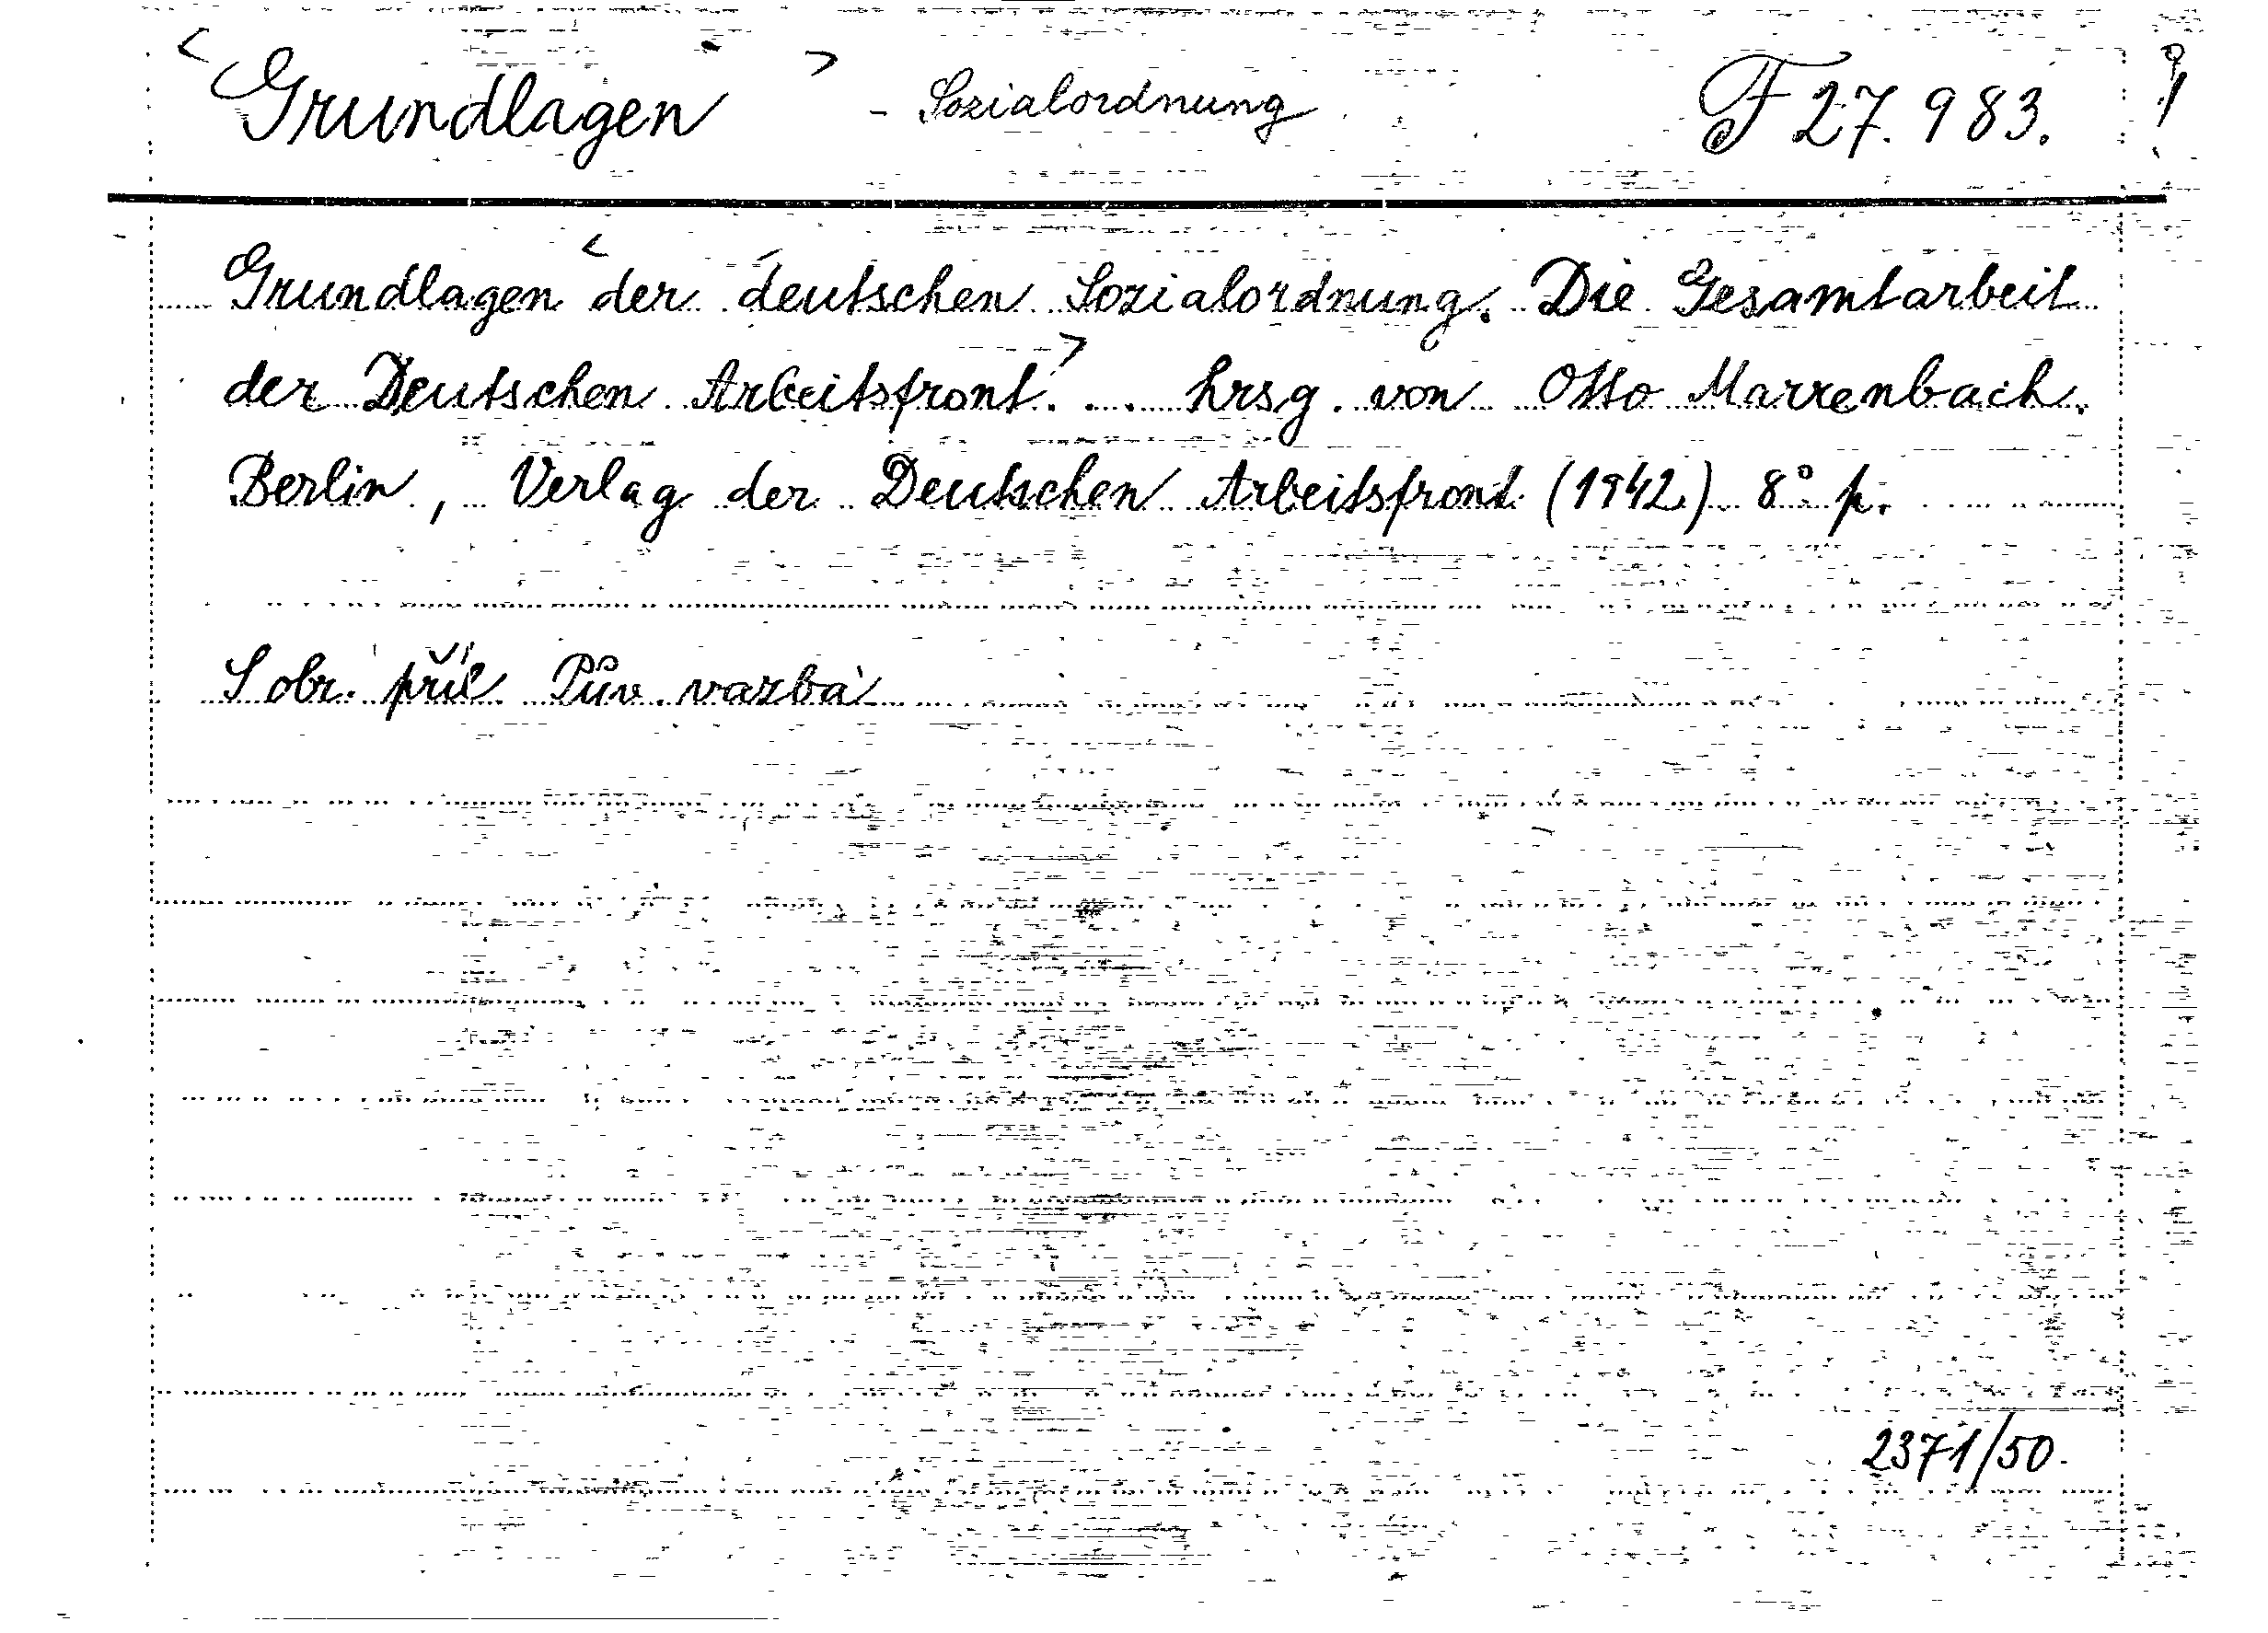 < Grundlagen > - Sozialordnung F 27.983.
Grundlagen < der deutschen Sozialordnung. Die Gesamtarbeit
der Deutschen Arbeitsfront. > ... hrsg. von Otto Marrenbach.
Berlin, Verlag der Deutschen Arbeitsfront (1942) 8° p.
S obr. příl. Pův. vazba
2371/50.